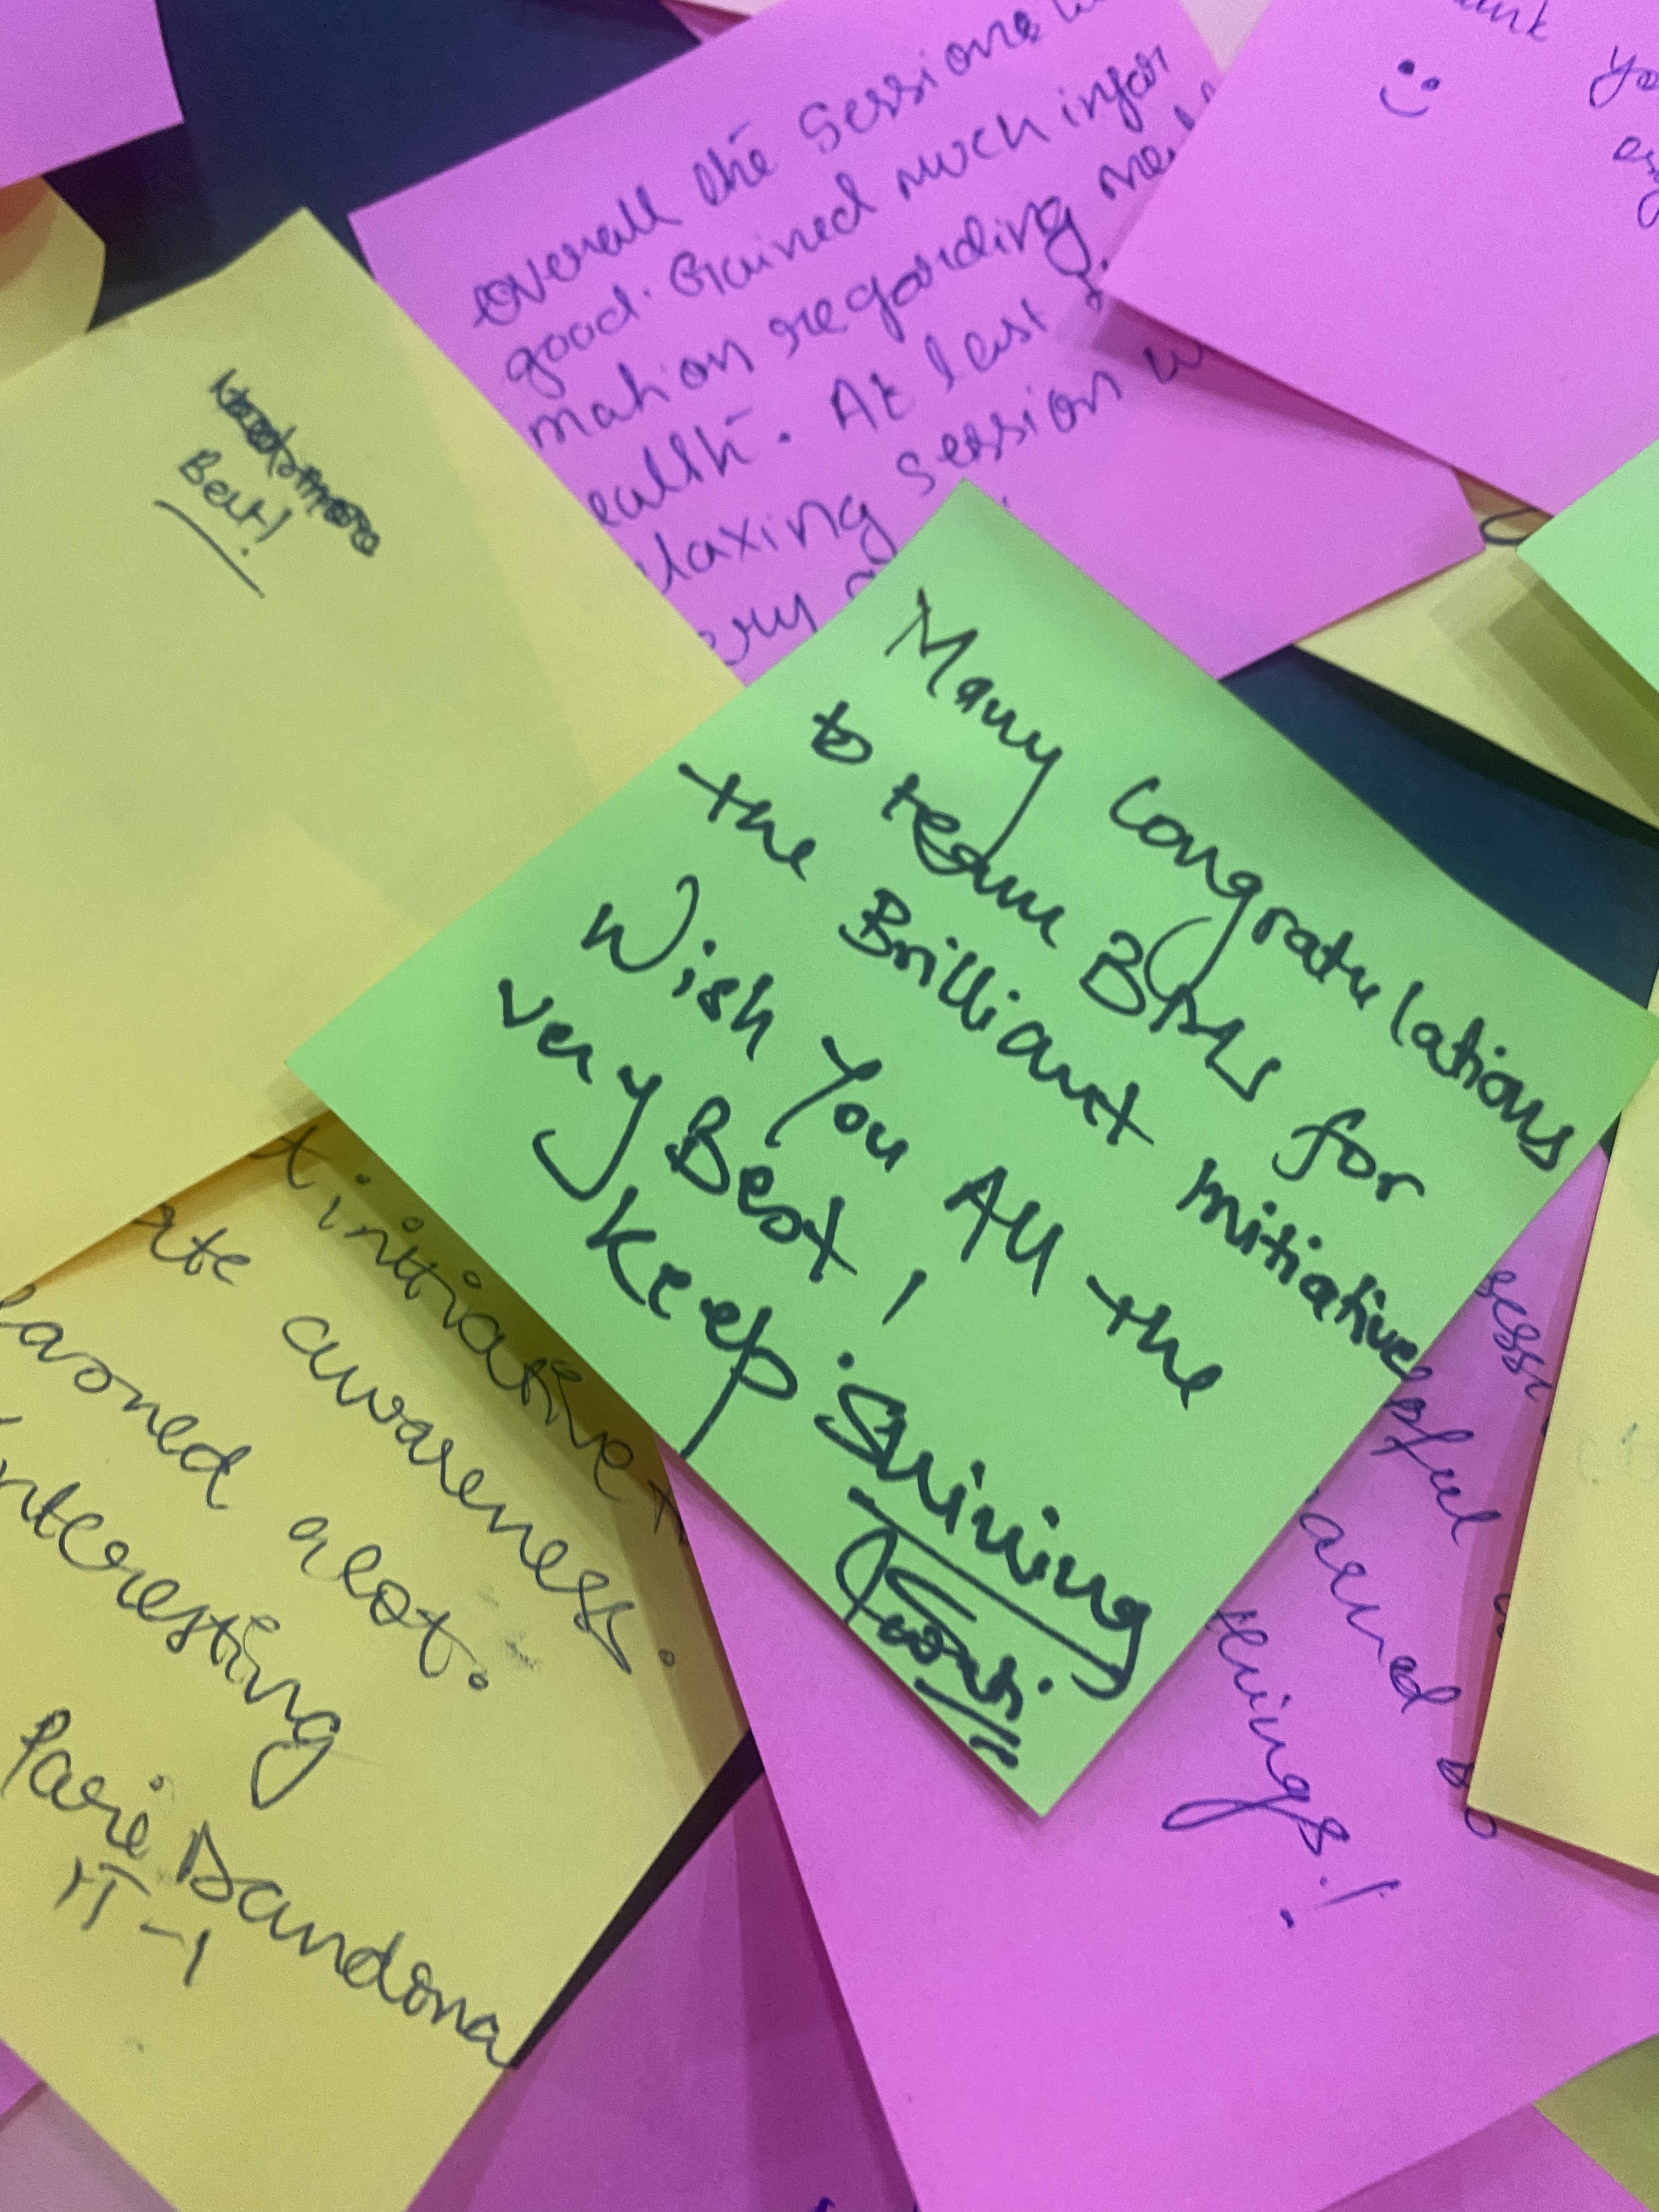 overall the Sessions
good. Gained much infor
mation regarding
ealth. At last
laxing session
ery
unk
Beat!
Many Congratulations
to team for
the Brilliant initiative
Wish You All the
very Best!
Keep Shining
t initiative
ate awareness.
earned alot.
nteresting
Pari Dandona
IT-1
sess
pful
arned
things!